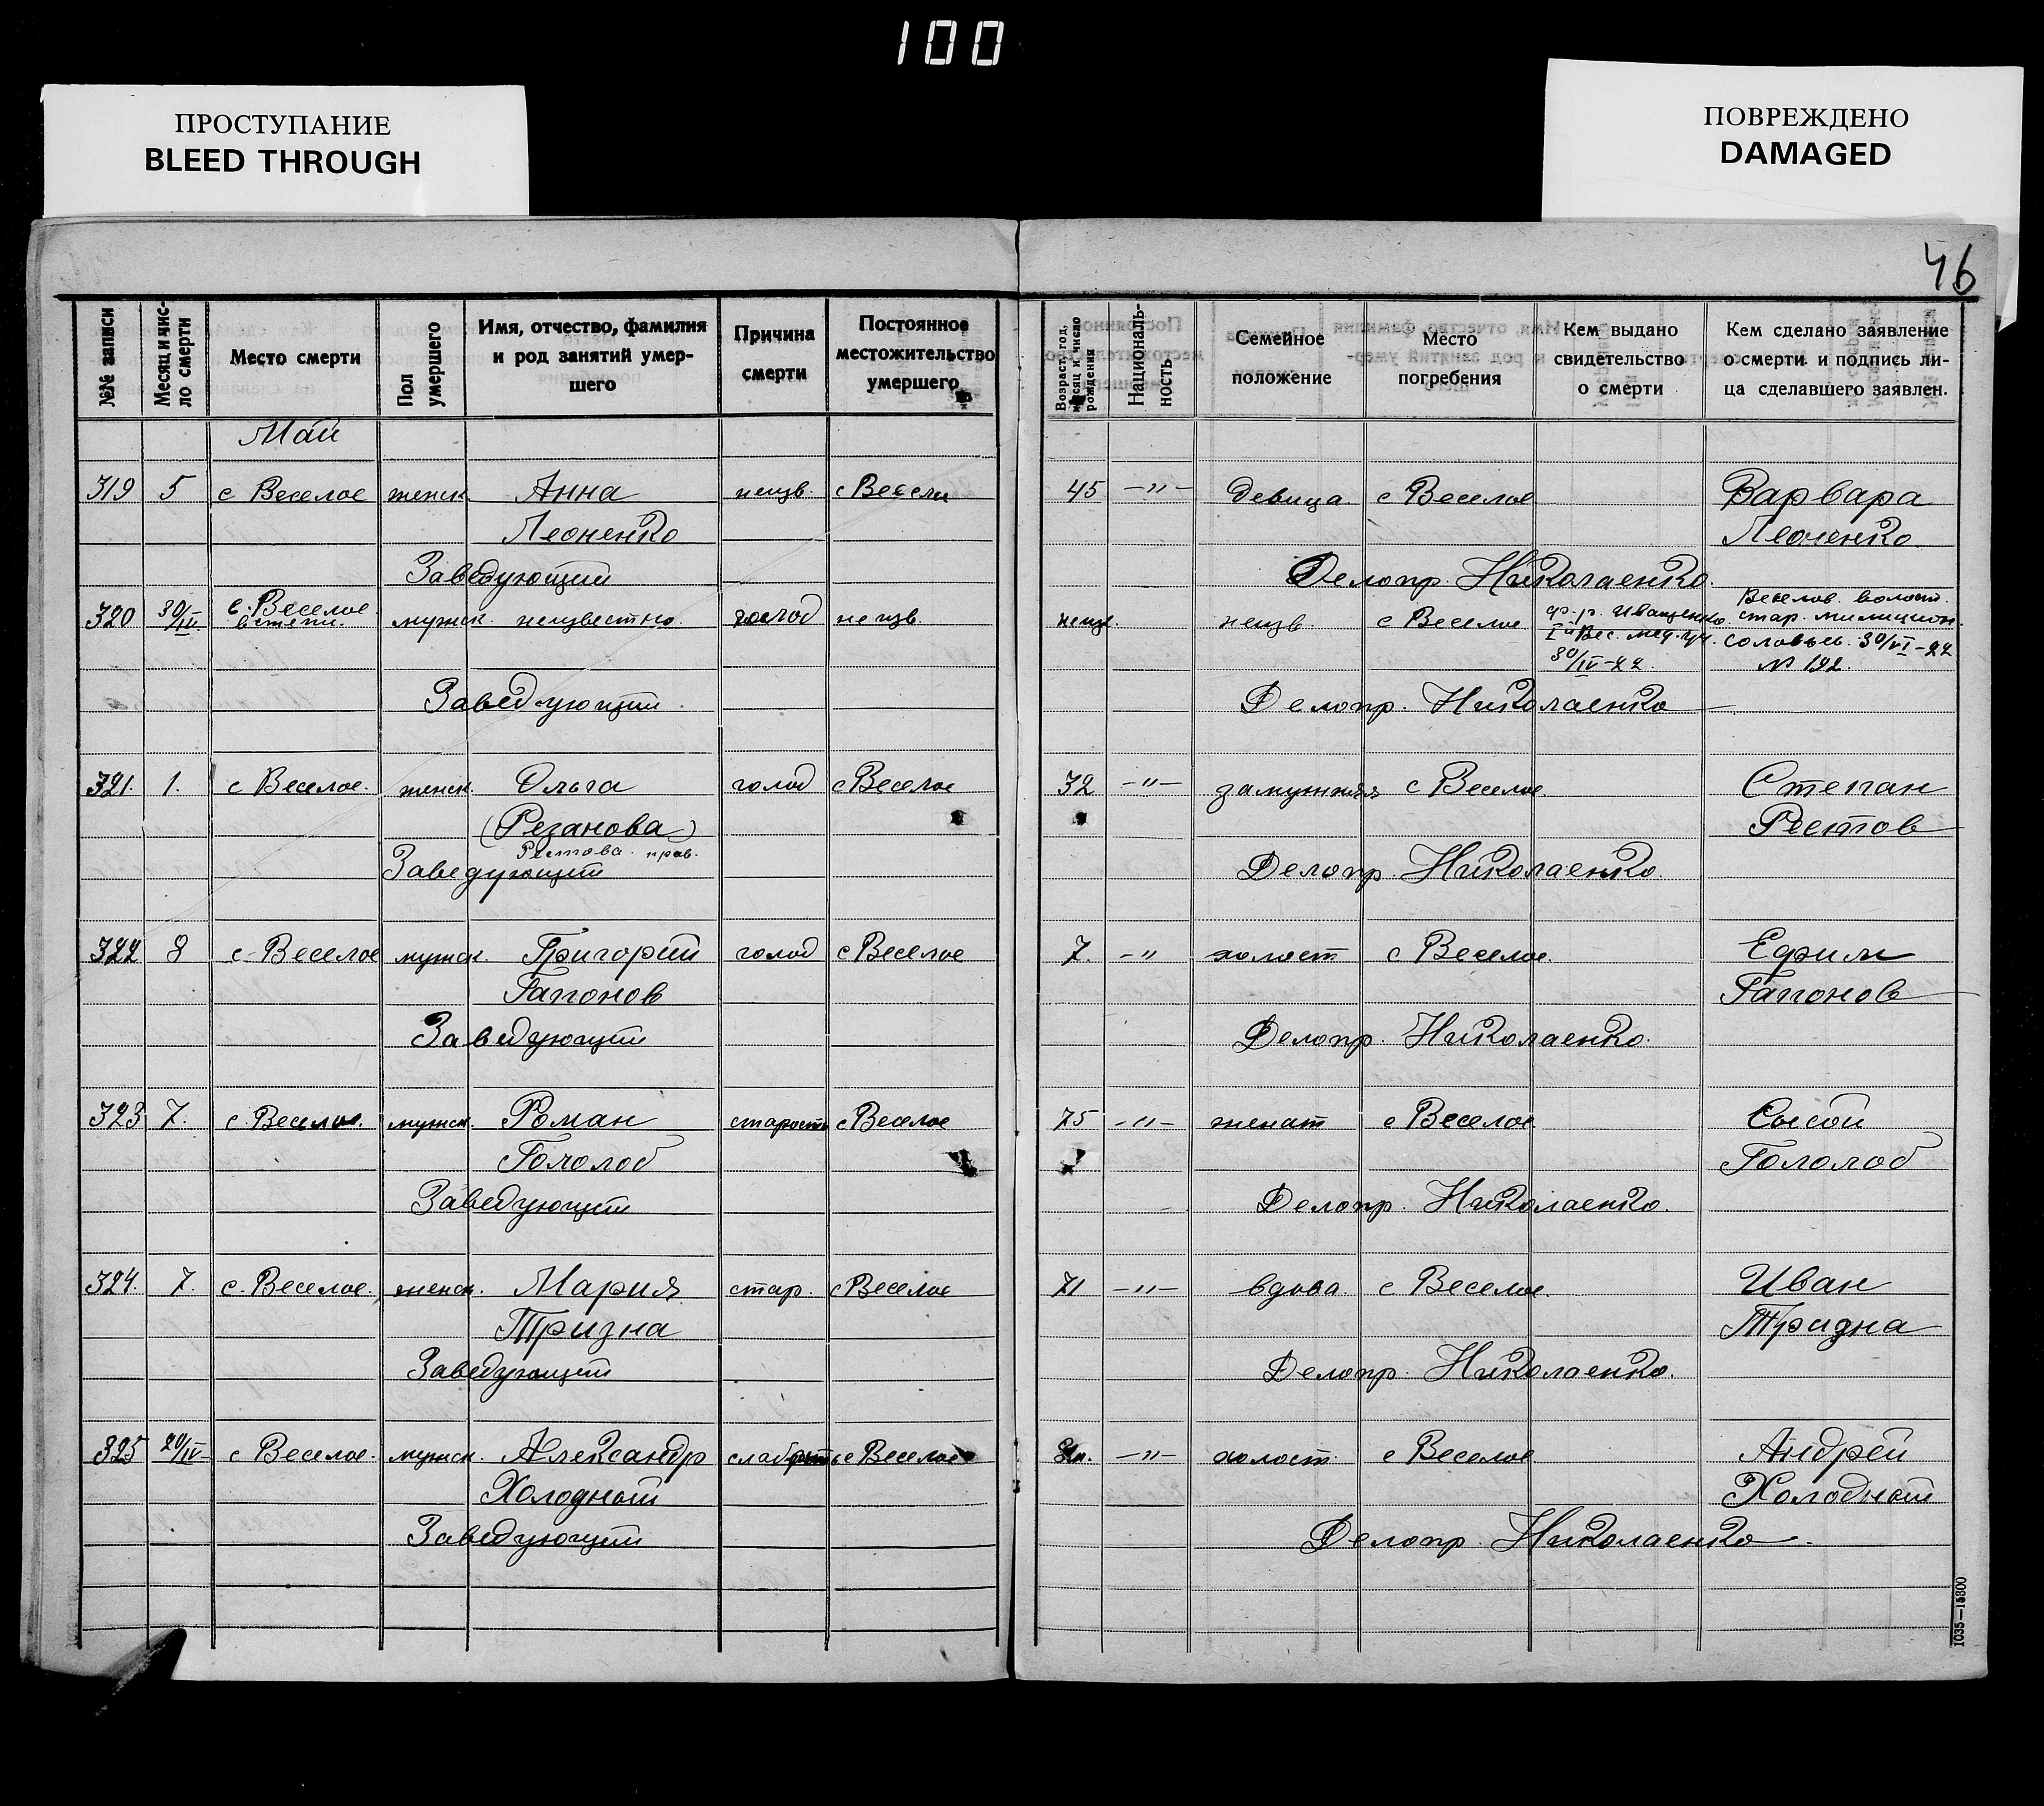 100
ПРОСТУПАНИЕ
BLEED THROUGH
ПОВРЕЖДЕНО
DAMAGED
46
№№ записи
Месяц и число смерти
Место смерти
Пол умершего
Имя, отчество, фамилия и род занятий умершего
Причина смерти
Постоянное местожительство умершего
Возраст, год, месяц и число рождения
Националь-ность
Семейное положение
Место погребения
Кем выдано свидетельство о смерти
Кем сделано заявление о смерти и подпись ли-ца сделавшего заявлен.
Май
319 5 с Веселое женск Анна неизв. с Весели 45 —"— девица с Веселое Варвара
Леоненко Леоненко
Заведующий Делопр. Николаенко.
320 30/IV с. Веселое в степи. мужск. неизвестно. голод неизв неизв неизв. с Веселое ф-р. Иващенко Веселов. волост.
I й Вес. мед. уч. стар. милицион.
30/IV-22. Соловьев. 30/VI-22
№ 192.
Заведующий. Делопр. Николаенко
321. 1. с Веселое. женск. Ольга голод с Веселое 32 —"— замужняя с Веселое. Степан
(Резанова) Рестов
Рестова. прав.
Заведующий Делопр. Николаенко.
322 8 с Веселое мужск Григорий голод с Веселое 7. —" холост с Веселое. Ефим
Гапонов Гапонов
Заведующий Делопр. Николаенко.
323 7. с. Веселое. мужск. Роман старость с Веселое 75 —"— женат с Веселое Сысой
Гололоб Гололоб
Заведующий Делопр. Николаенко.
324. 7. с. Веселое. женск. Мария стар. с Веселое 71 —"— вдова. с Веселое. Иван
Тризна Тризна
Заведующий Делопр. Николаенко.
325 20/IV с Веселое. мужск. Александр слабость с Веселое —"— холост. с Веселое Андрей
Холодный Холодный
Заведующий Делопр. Николаенко.
1035—15300